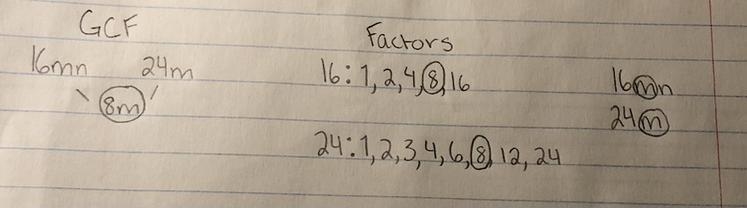 GCF
16mn 24m
8m
Factors
16: 1, 2, 4, 8, 16
24: 1, 2, 3, 4, 6, 8, 12, 24
16mn
24m